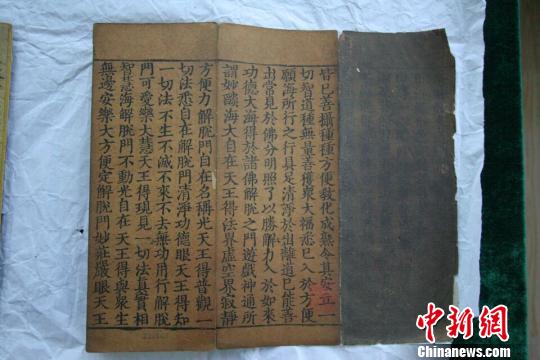 皆已善攝種種方便教化成熟令其安立一
切智道種無量善獲衆大福悉已入於方便
願海所行之行具足清淨於出離道已能善
出常見於佛分明照了以勝解力入於如來
功德大海得於諸佛解脱之門遊戲神通所
謂妙燄海大自在天王得法界虛空界寂靜
方便力解脱門自在名稱光天王得普觀一
切法悉自在解脱門清淨功德眼天王得知
一切法不生不滅不來不去無功用行解脱
門可愛樂大慧天王得現見一切法真實相
智慧海解脱門不動光自在天王得與衆生
無邊安樂大方便定解脱門妙莊嚴眼天王
中新网
Chinanews.com